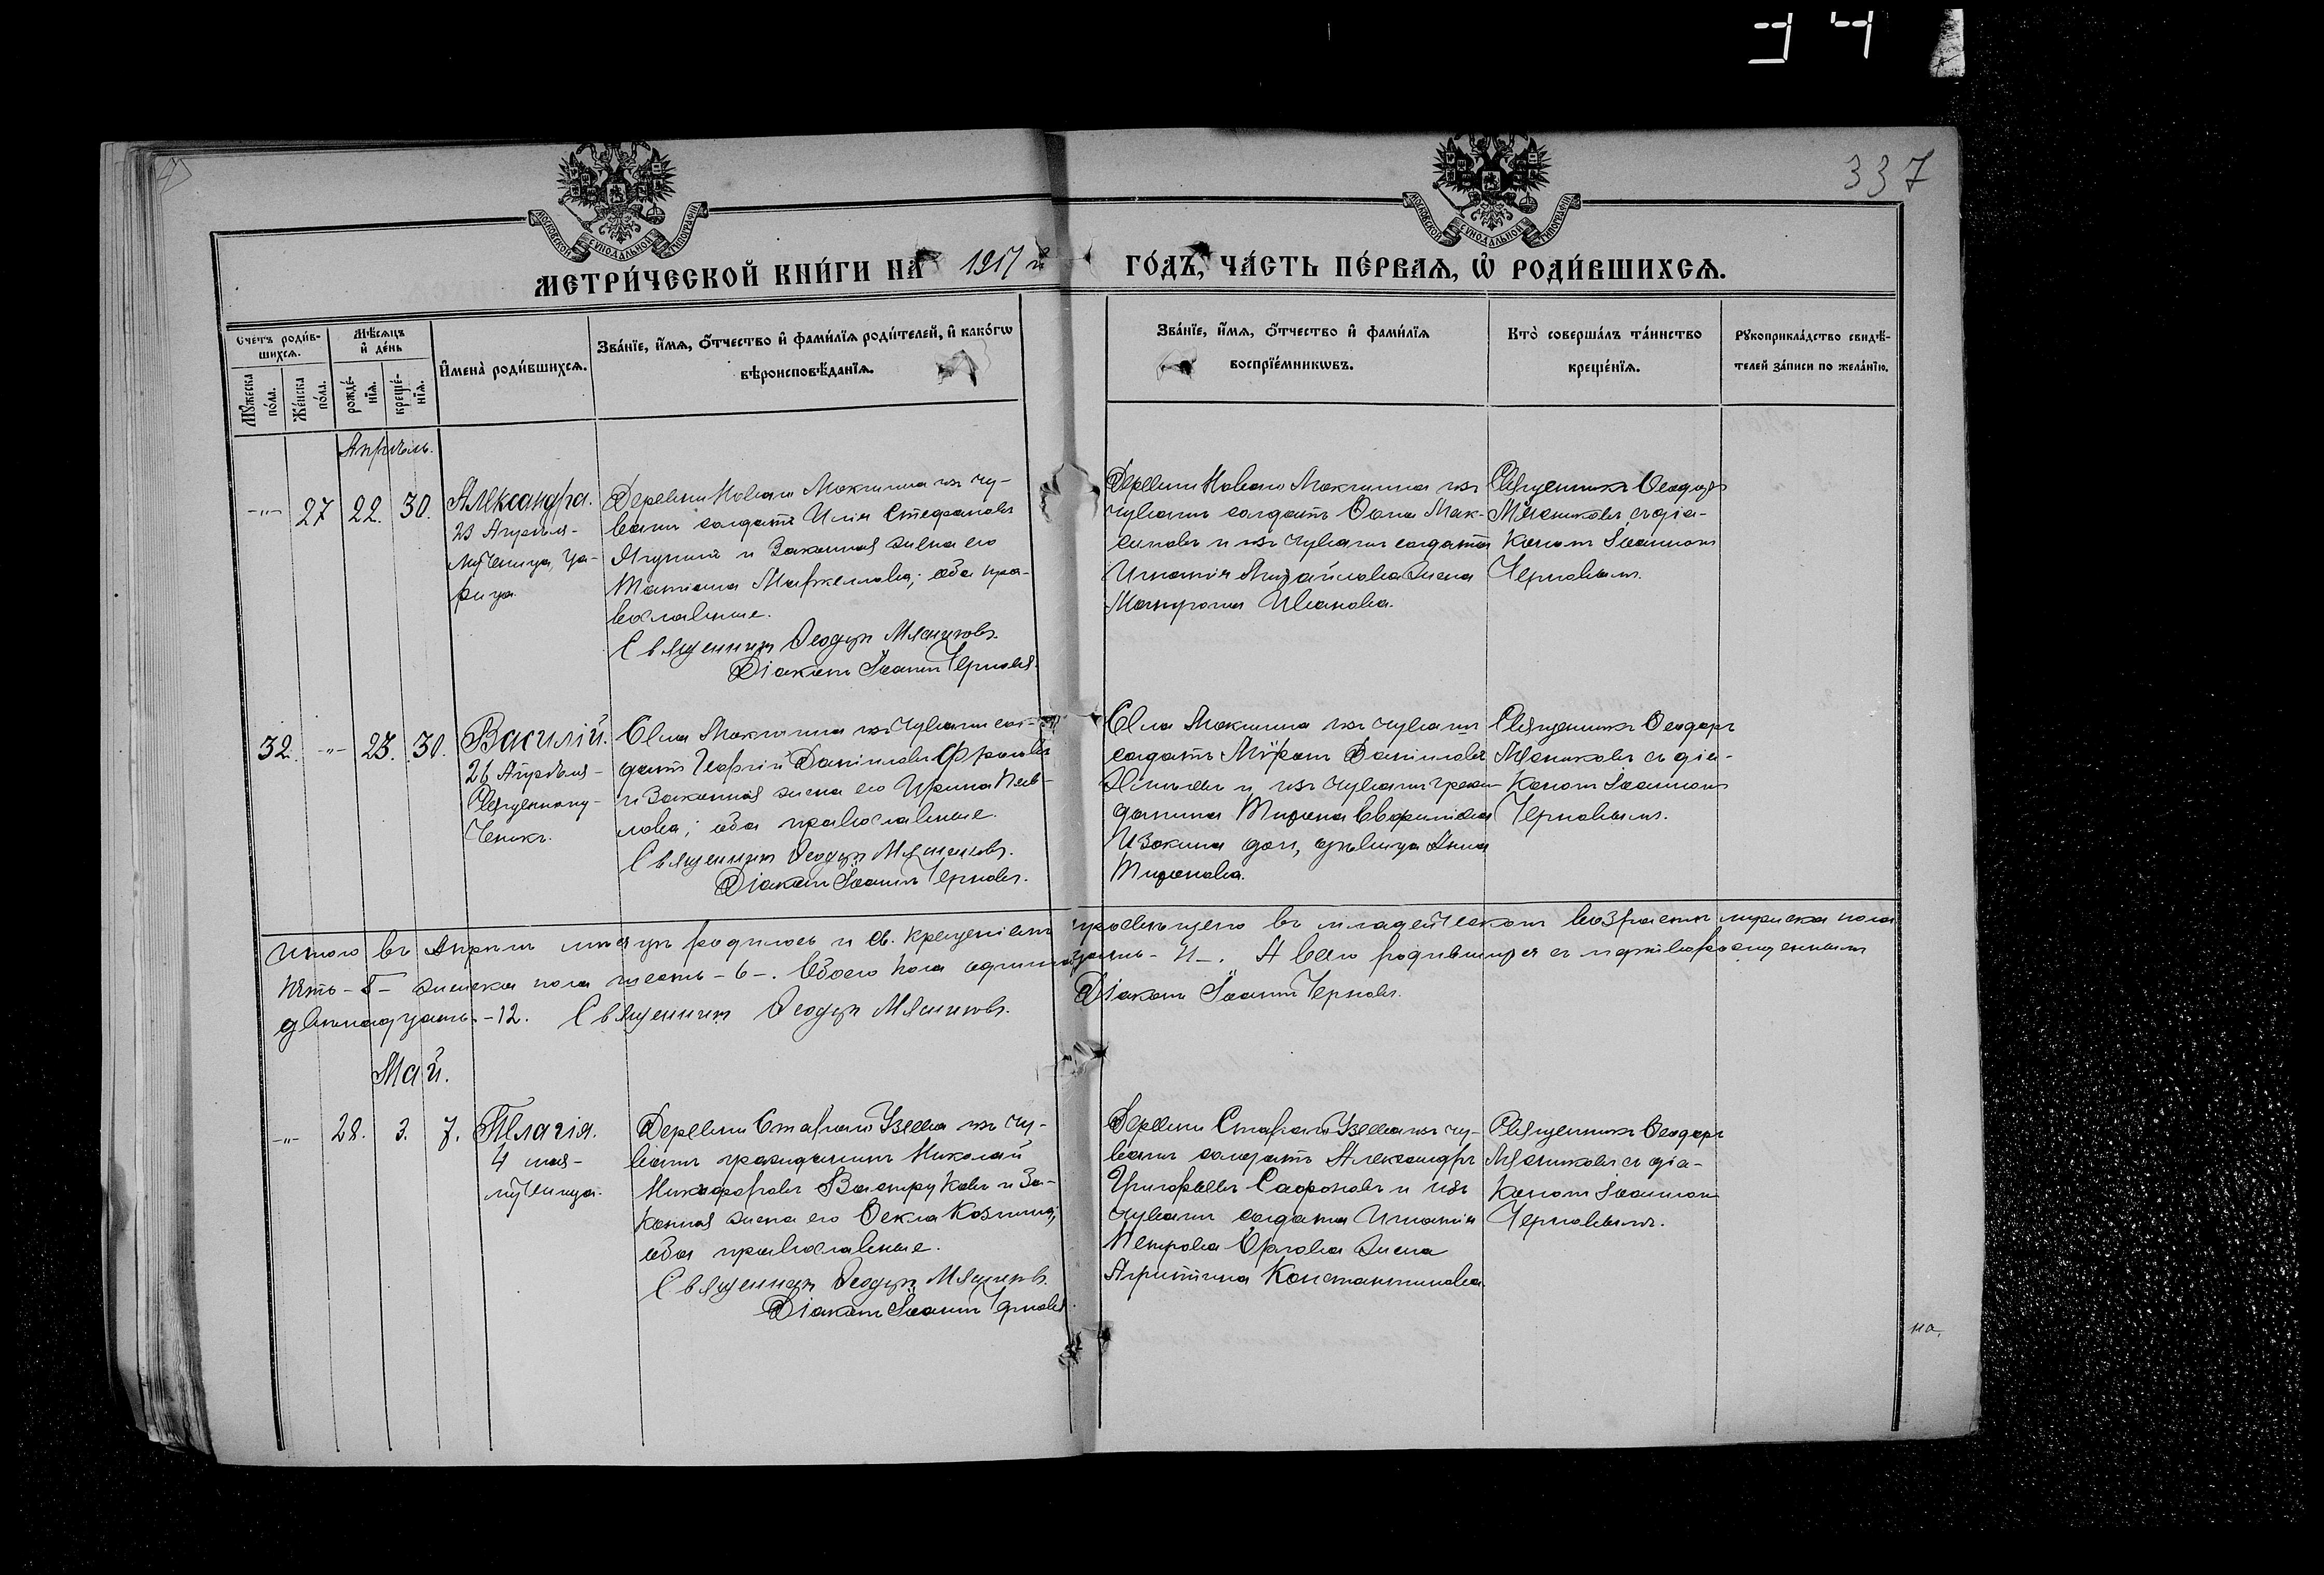 337
МОСКОВСКОЙ СѴНОДАЛЬНОЙ ТИПОГРАФІИ
МОСКОВСКОЙ СѴНОДАЛЬНОЙ ТИПОГРАФІИ
МЕТРИ́ЧЕСКОЙ КНИ́ГИ НА 1917 й ГО́ДЪ, ЧА́СТЬ ПЕ́РВАѦ, Ѡ҆ РОДИ́ВШИХСѦ.
Сче́тъ роди́в-
шихсѧ.
Мꙋ́жеска по́ла.
Же́нска по́ла.
Мѣ́сѧцъ и҆ де́нь
рожде́-нїѧ.
креще́-нїѧ.
И҆мена̀ роди́вшихсѧ.
Зва́нїе, и҆́мѧ, ѻ҆́тчество и҆ фами́лїѧ роди́телей, и҆ како́гѡ
вѣроисповѣ́данїѧ.
Зва́нїе, и҆́мѧ, ѻ҆́тчество и҆ фами́лїѧ
воспрїе́мникѡвъ.
Кто̀ соверша́лъ та́инство
креще́нїѧ.
Рꙋкоприкла́дство свидѣ́-
телей за́писи по жела́нїю.
Апрѣль.
-"- 27 22. 30.
Александра.
23 Апрѣля-
мученица, ца-
рица
Деревни Новаго Мокшина изъ чу-
вашъ солдатъ Илія Стефановъ
и Законная жена его
Татіана Маркелова; оба пра-
вославные.
Священникъ Ѳеодоръ Мясниковъ.
Діаконъ Іоаннъ Черновъ.
Деревни Новаго Мокшина изъ
чувашъ солдатъ Ѳома Мак-
симовъ и изъ чувашъ солдата
Игнатія Михайлова жена
Матрона Иванова.
Священникъ Ѳеодоръ
Мясниковъ съ діа-
кономъ Іоанномъ
Черновымъ.
32. -"- 23. 30.
Василій.
26 Апрѣля-
Священному-
ченикъ.
Села Мокшина изъ чувашъ сол-
датъ Георгій Даніиловъ
и Законная жена его Ирина Пав-
лова; оба православные.
Священникъ Ѳеодоръ Мясниковъ.
Діаконъ Іоаннъ Черновъ.
Села Мокшина изъ чувашъ
солдатъ Миронъ Даніиловъ
и изъ чувашъ граж-
данина Тихона
дочь, дѣвица Анна
Тихонова.
Священникъ Ѳеодоръ
Мясниковъ съ діа-
кономъ Іоанномъ
Черновымъ.
Итого въ Апрѣлѣ мѣсяцѣ родилось и св. крещеніемъ просвѣщено въ младенческомъ возрастѣ мужеска пола
пять -5- женска пола шесть -6-. Обоего пола одиннадцать -11-. А всего родившихся съ мертворожденнымъ
двѣнадцать -12. Священникъ Ѳеодоръ Мясниковъ. Діаконъ Іоаннъ Черновъ.
Май.
-"- 28. 3. 7.
Пелагія.
4 мая-
мученица.
Деревни Стараго Узеева изъ чу-
вашъ гражданинъ Николай
Никифоровъ и За-
конная жена его Ѳекла Козмина;
оба православные.
Священникъ Ѳеодоръ Мясниковъ.
Діаконъ Іоаннъ Черновъ.
Деревни Стараго Узеева изъ чу-
вашъ солдатъ Александръ
Григорьевъ Сафоновъ и изъ
чувашъ солдата Игнатія
Петрова Орлова жена
Агриппина Константинова.
Священникъ Ѳеодоръ
Мясниковъ съ діа-
кономъ Іоанномъ
Черновымъ.